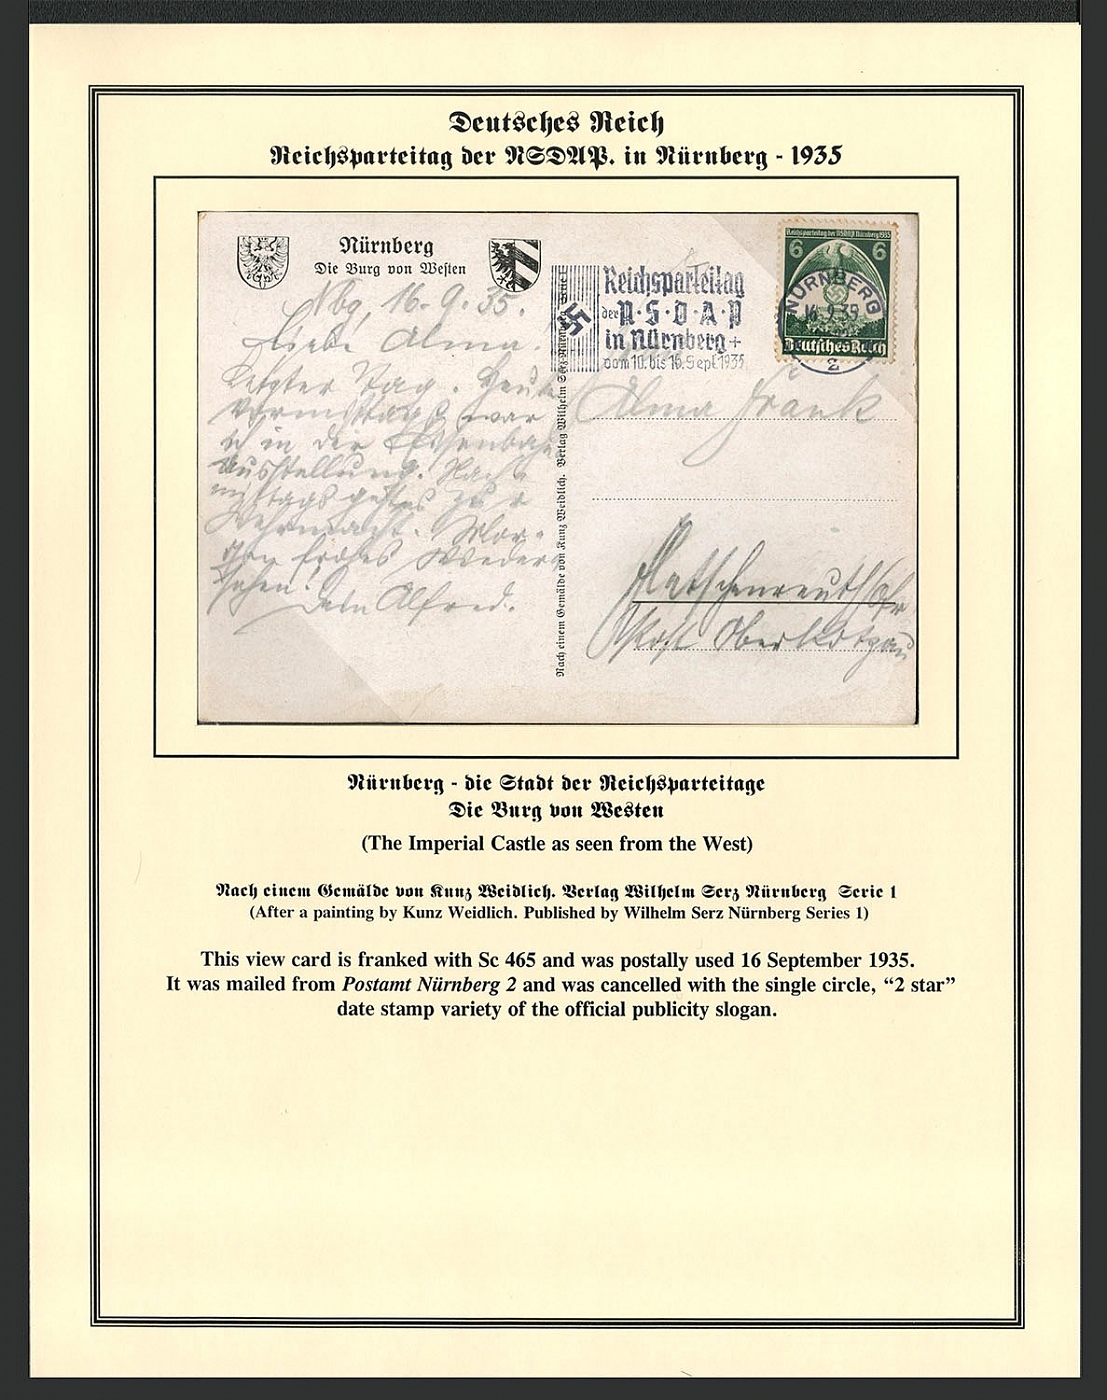 Deutsches Reich
Reichsparteitag der NSDAP. in Nürnberg - 1935
Nürnberg
Die Burg von Westen
Nbg, 16. 9. 35.
Liebe Alma!
Letzter Tag. Heute
Vormittags war
ich in der Eisenbahn
Ausstellung. Nach
mittags geht es zur
Wehrmacht. Mor-
gen frohes Wieder-
sehen!
Dein Alfred.
Nach einem Gemälde von Kunz Weidlich. Verlag Wilhelm Serz Nürnberg Serie 1
Reichsparteitag
der N·S·D·A·P
in Nürnberg +
vom 10. bis 16. Sept. 1935
Reichsparteitag der NSDAP Nürnberg 1935
6 6
Deutsches Reich
NÜRNBERG
16.9.35
2
Alma Frank
Post Oberkotzau
Nürnberg - die Stadt der Reichsparteitage
Die Burg von Westen
(The Imperial Castle as seen from the West)
Nach einem Gemälde von Kunz Weidlich. Verlag Wilhelm Serz Nürnberg Serie 1
(After a painting by Kunz Weidlich. Published by Wilhelm Serz Nürnberg Series 1)
This view card is franked with Sc 465 and was postally used 16 September 1935.
It was mailed from Postamt Nürnberg 2 and was cancelled with the single circle, “2 star”
date stamp variety of the official publicity slogan.